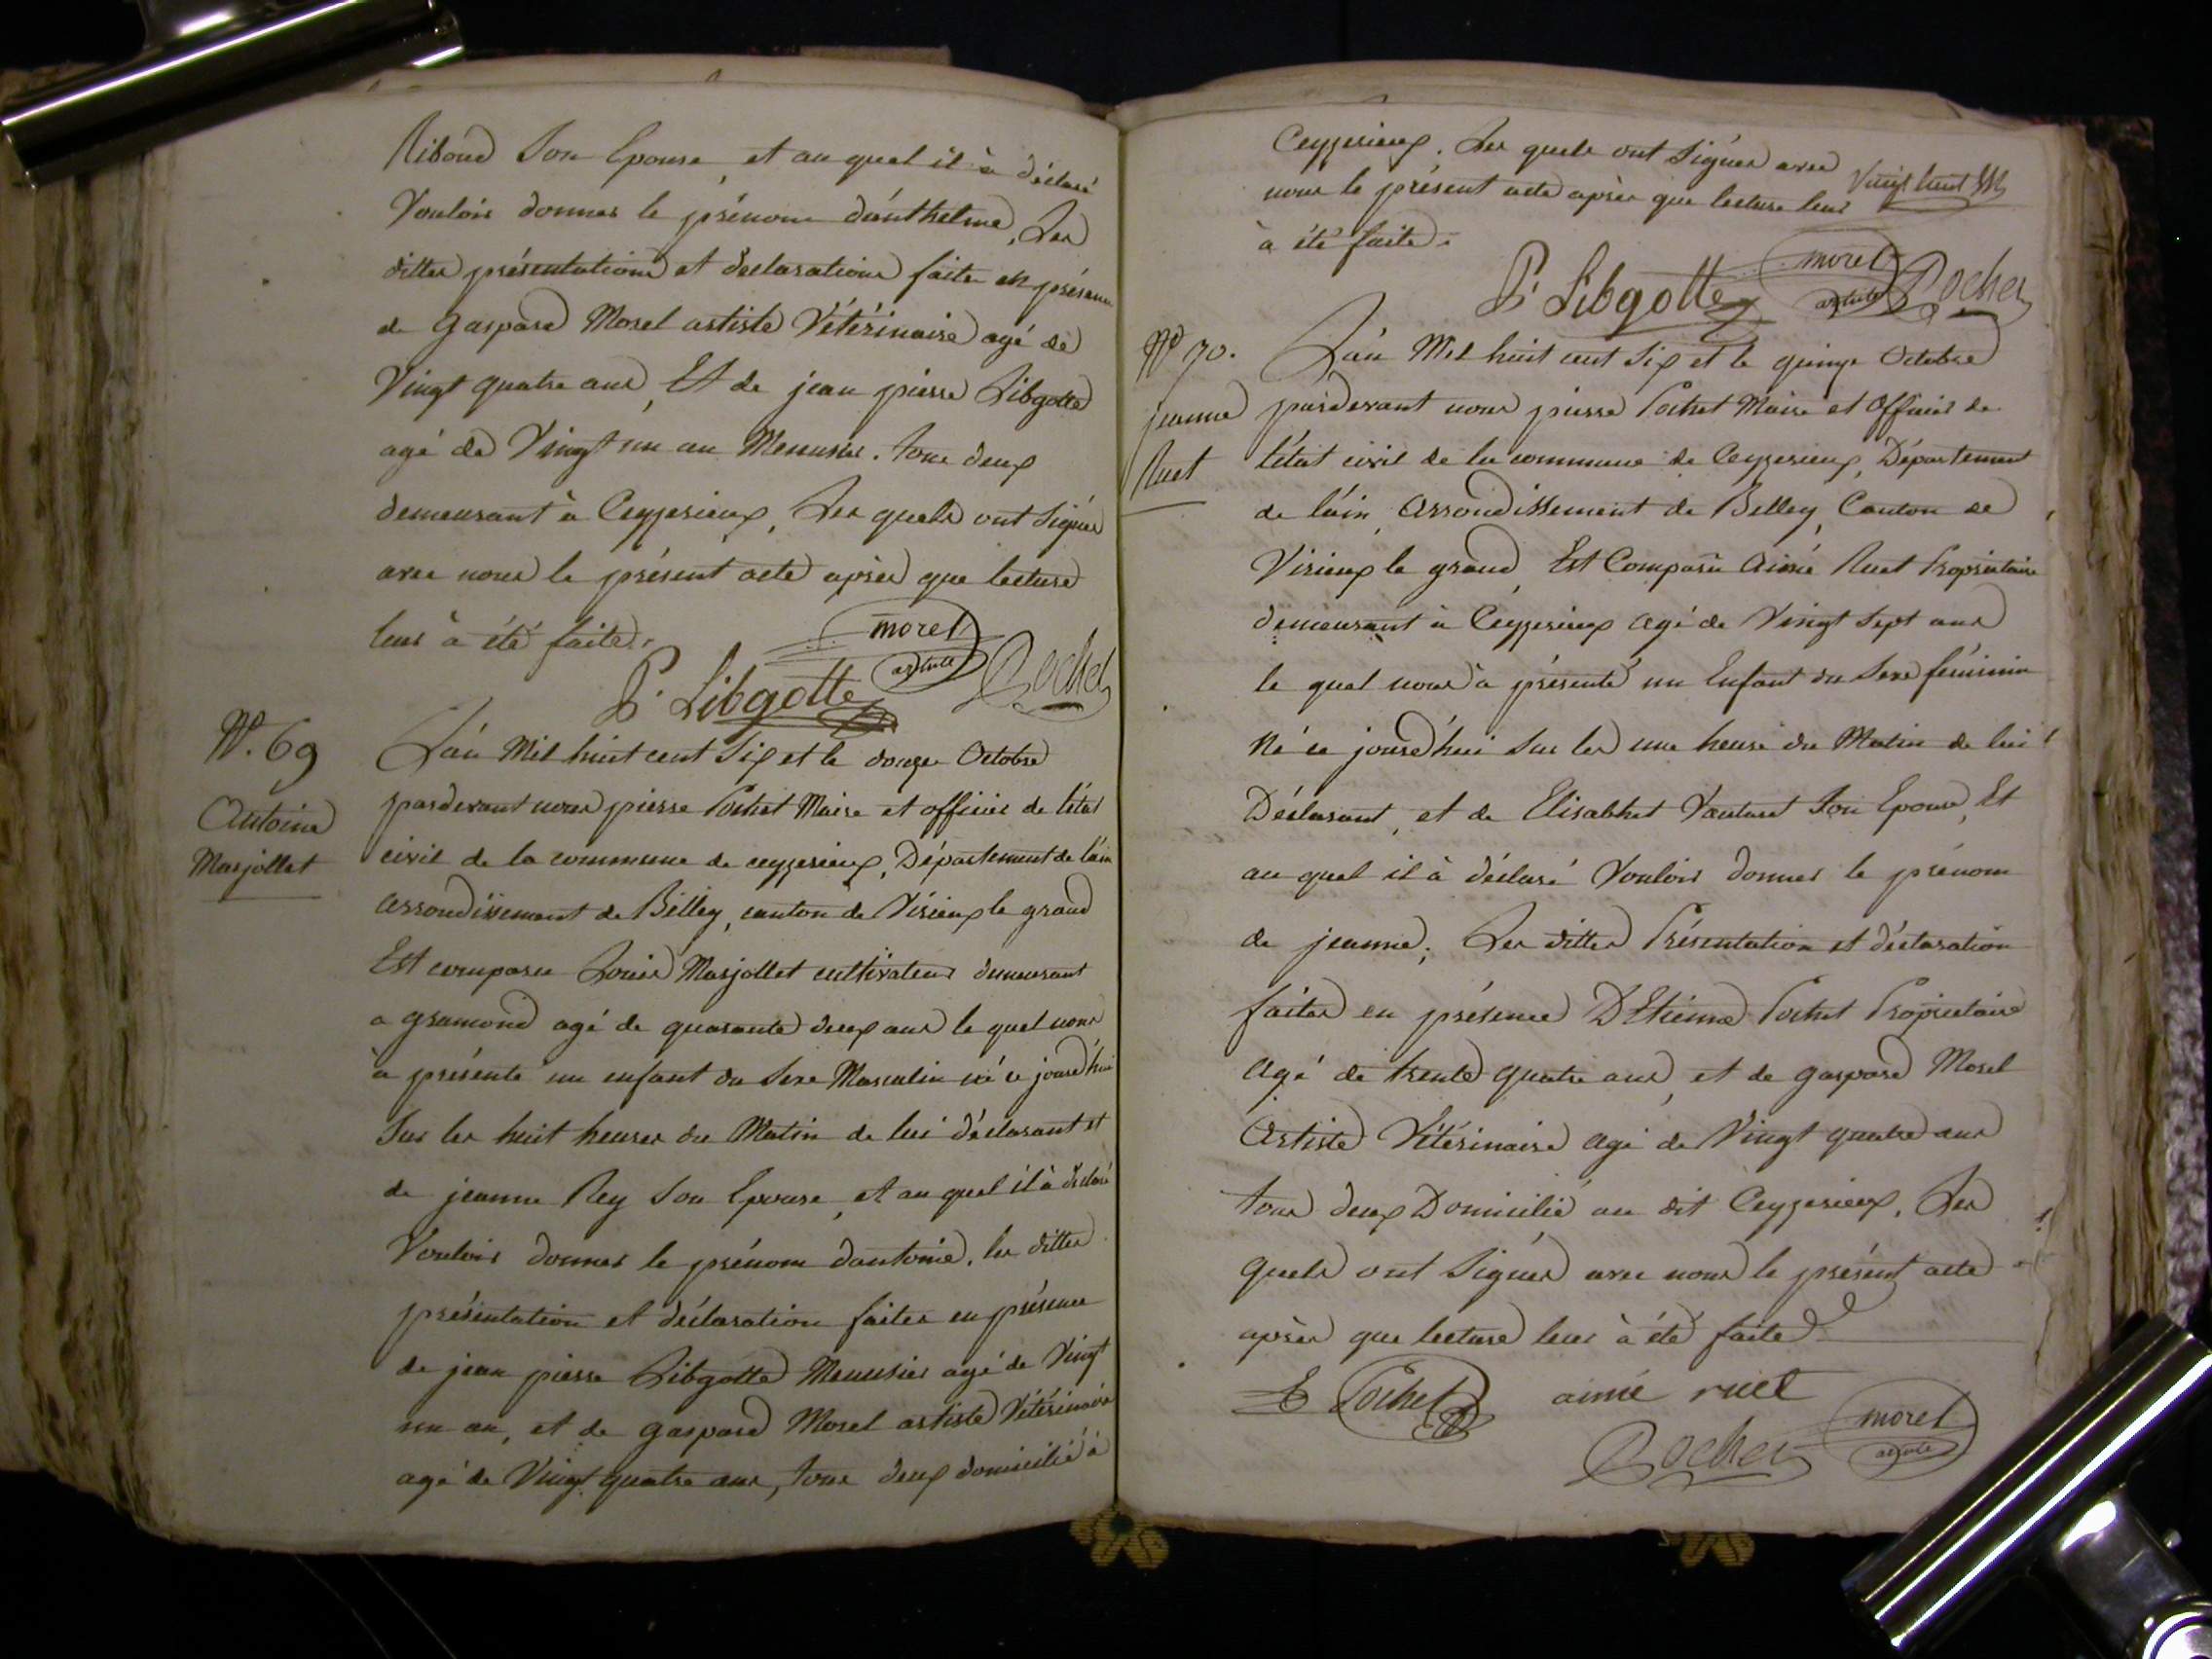 Riboud Son Epouse, et au quel il à déclaré
Vouloir donner le prénom d'anthelme, Les
dittes présentations et declarations faite en présence
de gaspard Morel artiste Vétérinaire agé de
Vingt quatre ans, Et de jean pierre Libgotte
agé de Vingt un an Menusier. tous deux
demeurant à Ceyzerieux, Les quels ont Signés
avec nous le présent acte après que lecture
leur à été faite.
morel
artiste
P. Libgotte
Pochet
N°. 69
Antoine
Marjollet
L'an Mil huit cent Six et le douze Octobre
pardevant nous pierre Pochet Maire et officier de l'état
civil de la commune de ceyzerieux, Département de l'ain
arrondissement de Belley, canton de Virieux le grand
Est comparu Louis Marjollet cultivateur demeurant
a gramond agé de quarante deux ans le quel nous
à présenté un enfant du Sexe Masculin né ce jourd'hui
Sur les huit heures du Matin de lui déclarant et
de jeanne Rey Son Epouse, et au quel il à déclaré
Vouloir donner le prénom d'antoine. les dittes
présentation et déclaration faites en présence
de jean pierre Libgotte Menusier agé de Vingt
un an, et de gaspard Morel artiste Vétérinaire
agé de Vingt quatre ans, tous deux domicilié à
Ceyzerieux. Les quels ont Signés avec
nous le présent acte après que lecture leur
à été faite.
Vingt huit
P. Libgotte
morel
artiste
Pochet
N° 70.
jeanne
Ruet
L'an Mil huit cent Six et le quinze Octobre
pardevant nous pierre Pochet Maire et Officier de
l'état civil de la commune de Ceyzerieux, Département
de l'ain, Arrondissement de Belley, Canton de
Virieux le grand, Est Comparu Aimé Ruet Propriétaire
demeurant à Ceyzerieux agé de Vingt Sept ans
le quel nous à présenté un Enfant du Sexe féminin
Né ce jourd'hui Sur les une heure du Matin de lui
Déclarant, et de Elisabhet Vauturet Son Epouse, Et
au quel il à déclaré Vouloir donner le prénom
de jeanne; Les dittes Présentation et déclaration
faites en présence D'Etienne Pochet Propriétaire
Agé de trente quatre ans, et de gaspard Morel
Artiste Vétérinaire agé de Vingt quatre ans
tous deux Domicilié au dit Ceyzerieux. Les
quels ont Signés avec nous le présent acte
après que lecture leur à été faite
E Pochet
aimé ruet
Pochet
morel
artiste